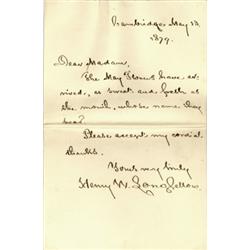 Cambridge May 13,
1879.
Dear Madam,
The May flowers have ar-
rived, as sweet and fresh as
the month, whose name they
bear.
Please accept my cordial
thanks.
Yours very truly
Henry W. Longfellow.